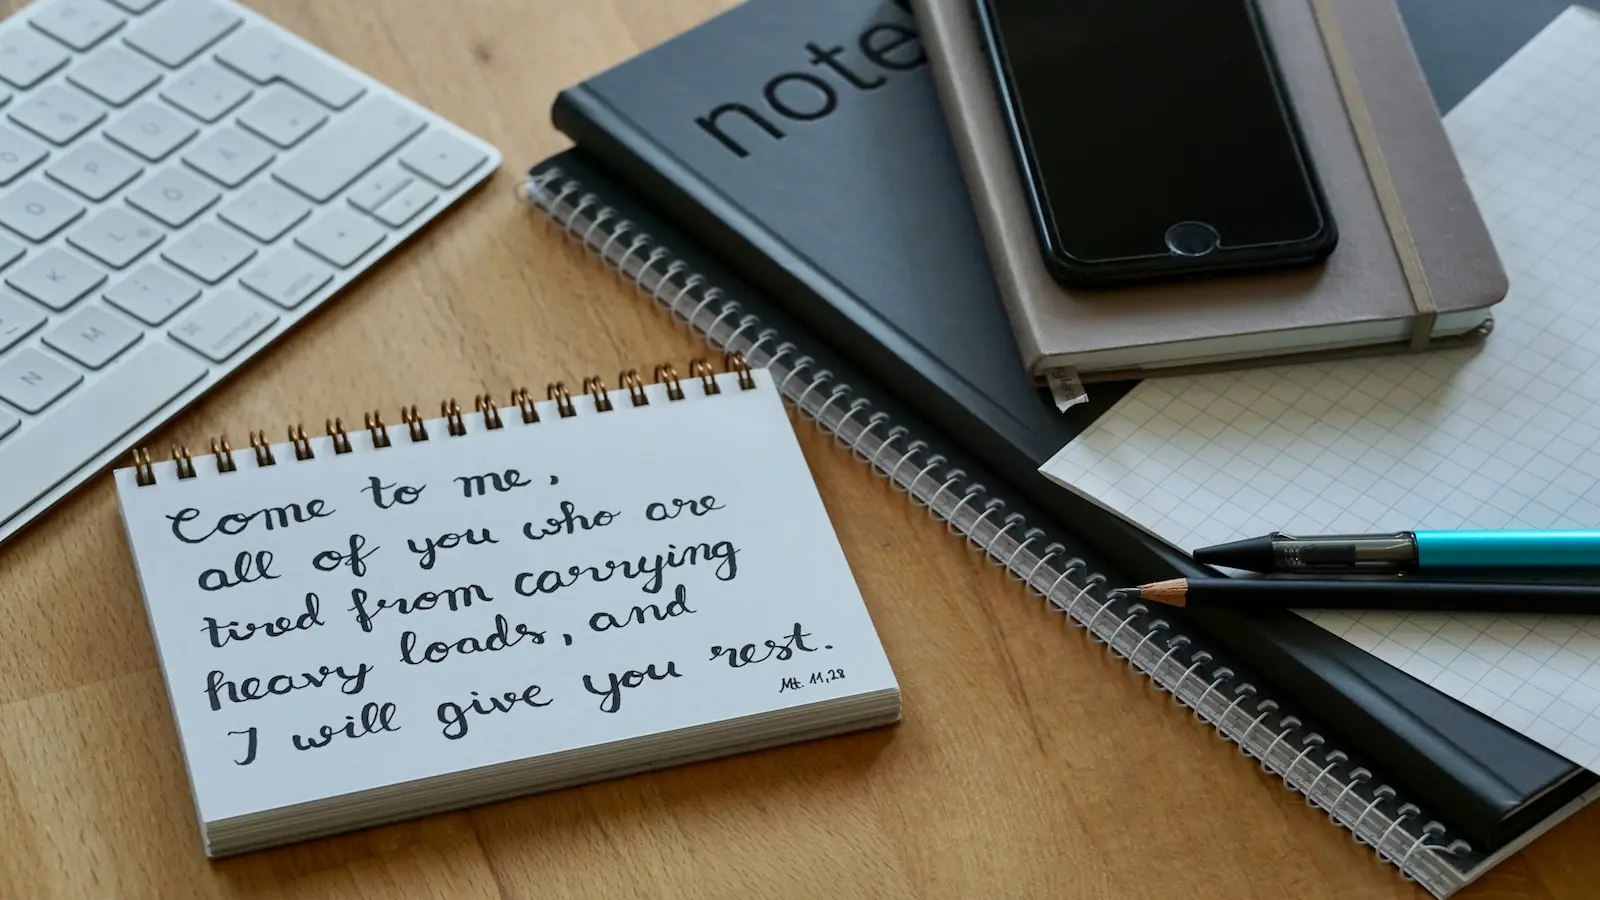 Come to me,
all of you who are
tired from carrying
heavy loads, and
I will give you rest.
Mt. 11,28
note
O
P
Å
L
Ö
K
M
N
command